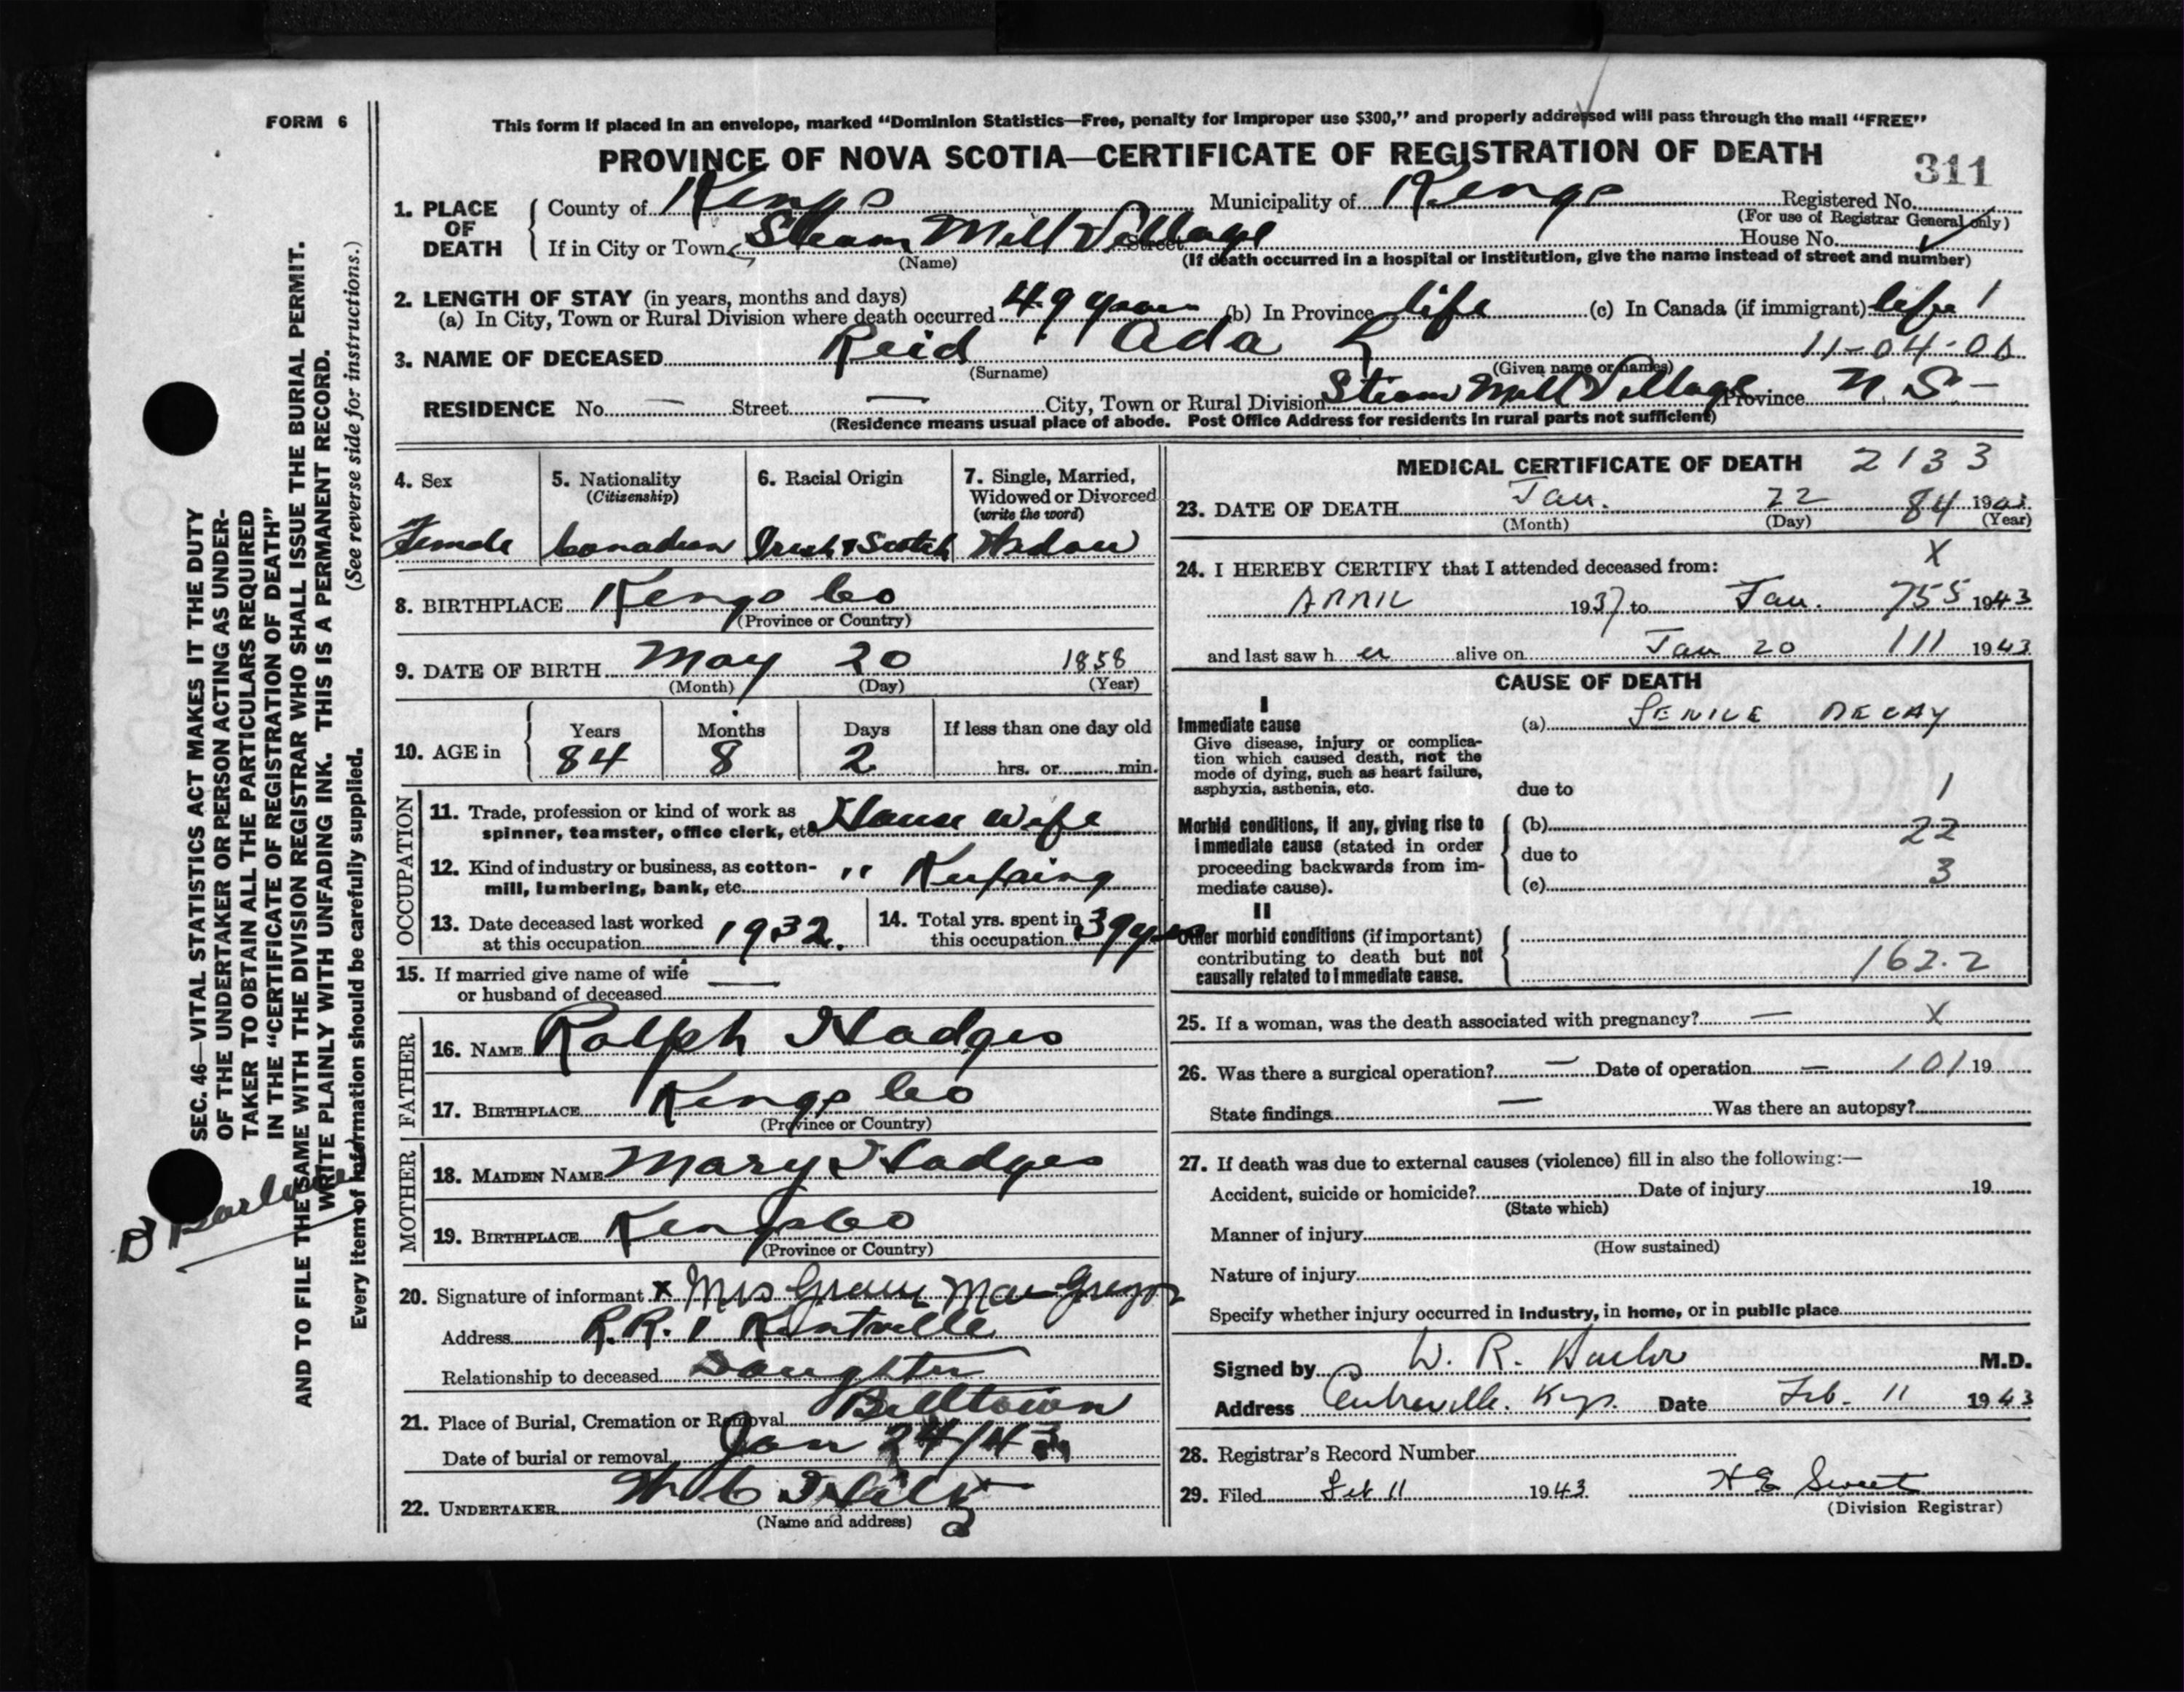 FORM 6
This form if placed in an envelope, marked “Dominion Statistics—Free, penalty for improper use $300,” and properly addressed will pass through the mail “FREE”
PROVINCE OF NOVA SCOTIA—CERTIFICATE OF REGISTRATION OF DEATH
311
1. PLACE OF DEATH { County of Kings Municipality of Kings Registered No.
(For use of Registrar General only)
If in City or Town Steam Mill Village Street House No.
(Name) (If death occurred in a hospital or institution, give the name instead of street and number)
2. LENGTH OF STAY (in years, months and days)
(a) In City, Town or Rural Division where death occurred 49 years (b) In Province life (c) In Canada (if immigrant) life 1
3. NAME OF DECEASED Reid Ada L 11-04-00
(Surname) (Given name or names)
RESIDENCE No. — Street — City, Town or Rural Division Steam Mill Village Province N.S.—
(Residence means usual place of abode. Post Office Address for residents in rural parts not sufficient)
4. Sex
Female
5. Nationality
(Citizenship)
Canadian
6. Racial Origin
Irish & Scotch
7. Single, Married,
Widowed or Divorced
(write the word)
Widow
8. BIRTHPLACE Kings Co
(Province or Country)
9. DATE OF BIRTH May 20 1858
(Month) (Day) (Year)
10. AGE in { Years Months Days If less than one day old
84 8 2 hrs. or min.
OCCUPATION
11. Trade, profession or kind of work as
spinner, teamster, office clerk, etc. House Wife
12. Kind of industry or business, as cotton-
mill, lumbering, bank, etc. " Keeping
13. Date deceased last worked
at this occupation 1932.
14. Total yrs. spent in
this occupation 39 years
15. If married give name of wife
or husband of deceased —
FATHER
16. NAME Ralph Hodges
17. BIRTHPLACE Kings Co
(Province or Country)
MOTHER
18. MAIDEN NAME Mary Hodges
19. BIRTHPLACE Kings Co
(Province or Country)
20. Signature of informant x Mrs MacGregor
Address R.R. 1 Kentville
Relationship to deceased Daughter
21. Place of Burial, Cremation or Removal Billtown
Date of burial or removal Jan 24/43
22. UNDERTAKER
(Name and address)
MEDICAL CERTIFICATE OF DEATH 2133
23. DATE OF DEATH Jan. 22 84 19
(Month) (Day) (Year)
X
24. I HEREBY CERTIFY that I attended deceased from:
APRIL 1937 to Jan. 755 1943
and last saw her alive on Jan 20 111 1943
CAUSE OF DEATH
I
Immediate cause
Give disease, injury or complica-
tion which caused death, not the
mode of dying, such as heart failure,
asphyxia, asthenia, etc.
(a) SENILE DECAY
due to 1
Morbid conditions, if any, giving rise to
immediate cause (stated in order
proceeding backwards from im-
mediate cause).
(b) 22
due to
(c) 3
II
Other morbid conditions (if important)
contributing to death but not
causally related to immediate cause.
162.2
25. If a woman, was the death associated with pregnancy? — X
26. Was there a surgical operation? — Date of operation — 101 19
State findings — Was there an autopsy?
27. If death was due to external causes (violence) fill in also the following:—
Accident, suicide or homicide? Date of injury 19
(State which)
Manner of injury
(How sustained)
Nature of injury
Specify whether injury occurred in industry, in home, or in public place
Signed by W. R. M.D.
Address Centreville. Kgs. Date Feb. 11 1943
28. Registrar's Record Number
29. Filed Feb 11 1943 H E Sweet
(Division Registrar)
SEC. 46—VITAL STATISTICS ACT MAKES IT THE DUTY
OF THE UNDERTAKER OR PERSON ACTING AS UNDER-
TAKER TO OBTAIN ALL THE PARTICULARS REQUIRED
IN THE “CERTIFICATE OF REGISTRATION OF DEATH”
AND TO FILE THE SAME WITH THE DIVISION REGISTRAR WHO SHALL ISSUE THE BURIAL PERMIT.
WRITE PLAINLY WITH UNFADING INK. THIS IS A PERMANENT RECORD.
Every item of information should be carefully supplied. (See reverse side for instructions.)